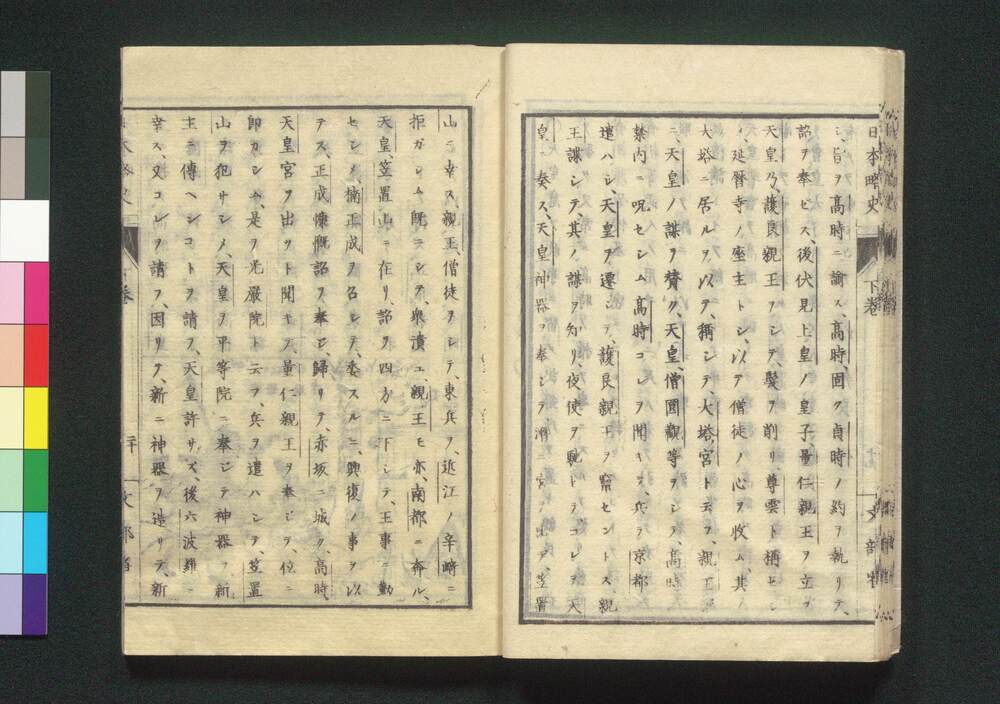 日本略史 下卷 文部省
シ、旨ヲ高時ニ諭ス、高時、固ク貞時ノ約ヲ執リテ、
詔ヲ奉ゼス、後伏見上皇ノ皇子、量仁親王ヲ立ツ
天皇乃、護良親王ヲシテ、髮ヲ削リ、尊雲ト稱セシ
メ、延曆寺ノ座主トシ、以テ僧徒ノ心ヲ收ム、其ノ
大塔ニ居ルヲ以テ、稱シテ大塔宮ト云フ、親王
ニ、天皇ノ謀ヲ賛ク、天皇、僧圓觀等ヲシテ、高時ヲ
禁内ニ呪セシム、高時コレヲ聞キ、兵ヲ京都ニ
遣ハシ、天皇ヲ遷シテ、護良親王ヲ竄セントス、親
王諜シテ、其ノ謀ヲ知リ、夜使ヲ馳トテコレヲ天
皇ニ奏ス、天皇神器ヲ奉シテ潛ニ宮ヲ出テ、笠置
山ニ幸ス、親王、僧徒ヲシテ、東兵ヲ、近江ノ辛崎ニ
拒ガシム、既ニシテ、衆潰ユ、親王モ亦、南都ニ奔ル、
天皇、笠置山ニ在リ、詔ヲ四方ニ下シテ、王事ニ勤
セシメ、楠正成ヲ召シテ、委スルニ、興復ノ事ヲ以
テス、正成慷慨詔ヲ奉ジ、歸リテ、赤坂ニ城ク、高時、
天皇宮ヲ出ヅト聞キ、量仁親王ヲ奉ジテ、位ニ
卽カシム、是ヲ光嚴院ト云フ、兵ヲ遣ハシテ、笠置
山ヲ犯サシメ、天皇ヲ平等院ニ奉ジテ神器ヲ新
主ニ傳ヘンコトヲ請フ、天皇許サズ、後六波羅ニ
幸ス、又コレヲ請フ、因リテ、新ニ神器ヲ造リテ、新